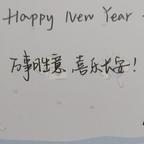 Happy New Year
万事胜意 喜乐长安！